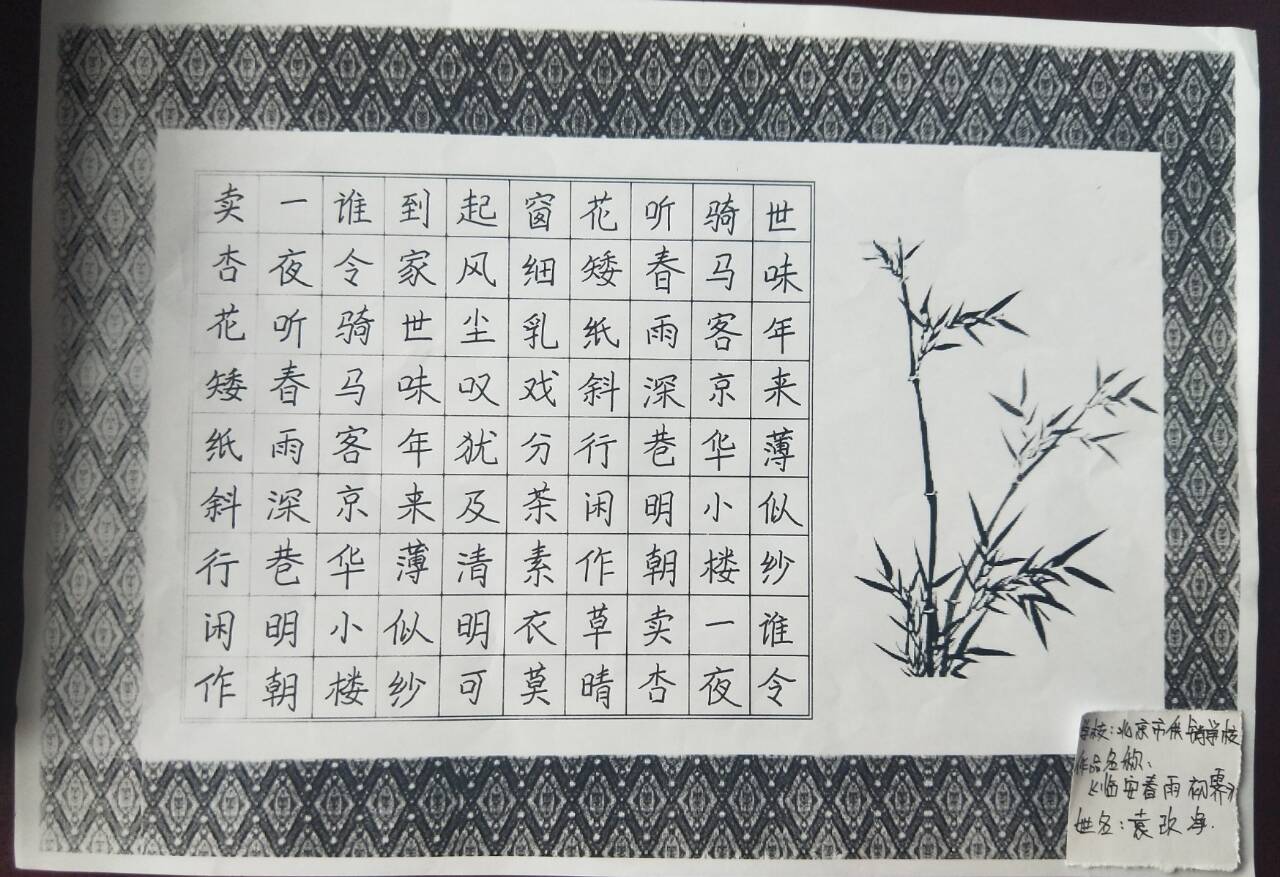 世味年来薄似纱谁令
骑马客京华小楼一夜
听春雨深巷明朝卖杏
花矮纸斜行闲作草晴
窗细乳戏分茶素衣莫
起风尘叹犹及清明可
到家世味年来薄似纱
谁令骑马客京华小楼
一夜听春雨深巷明朝
卖杏花矮纸斜行闲作
学校：北京市供销学校
作品名称：
《临安春雨初霁》
姓名：袁